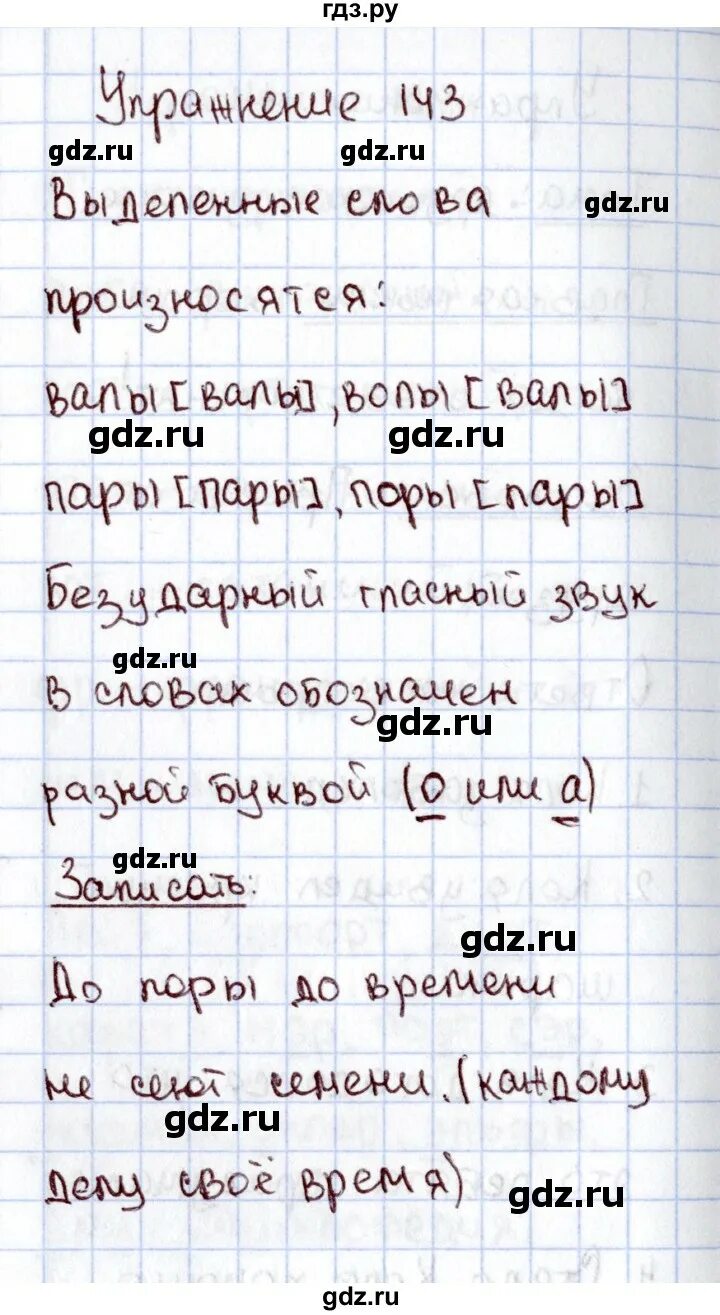 гдз.ру
Упражнение 143
gdz.ru gdz.ru
Выделенные слова
gdz.ru
произносятся:
валы [валы], волы [валы]
gdz.ru gdz.ru
пары [пары], поры [пары]
Безударный гласный звук
gdz.ru
в словах обозначен
gdz.ru
разной буквой (о или а)
gdz.ru
Записать:
gdz.ru
До поры до времени
не сеют семени. (каждому
gdz.ru
делу своё время)
gdz.ru
gdz.ru